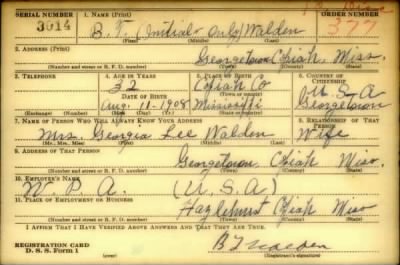 SERIAL NUMBER 1. NAME (Print) ORDER NUMBER
3014 B. T. (Initials Only) Walden 377
(First) (Middle) (Last)
2. ADDRESS (Print)
Georgetown Copiah Miss.
(Number and street or R. F. D. number) (Town) (County) (State)
3. TELEPHONE 4. AGE IN YEARS 5. PLACE OF BIRTH 6. COUNTRY OF CITIZENSHIP
32 Copiah Co U.S.A
DATE OF BIRTH (Town or county)
Aug. 11-1908 Mississippi Georgetown
(Exchange) (Number) (Mo.) (Day) (Yr.) (State or country)
7. NAME OF PERSON WHO WILL ALWAYS KNOW YOUR ADDRESS 8. RELATIONSHIP OF THAT PERSON
Mrs. Georgia Lee Walden Wife
(Mr., Mrs., Miss) (First) (Middle) (Last)
9. ADDRESS OF THAT PERSON
Georgetown Copiah Miss.
(Number and street or R. F. D. number) (Town) (County) (State)
10. EMPLOYER'S NAME
W. P. A. (U.S.A)
11. PLACE OF EMPLOYMENT OR BUSINESS
Hazlehurst Copiah Miss
(Number and street or R. F. D. number) (Town) (County) (State)
I AFFIRM THAT I HAVE VERIFIED ABOVE ANSWERS AND THAT THEY ARE TRUE.
REGISTRATION CARD
D. S. S. Form 1 B T Walden
(Registrant's signature)